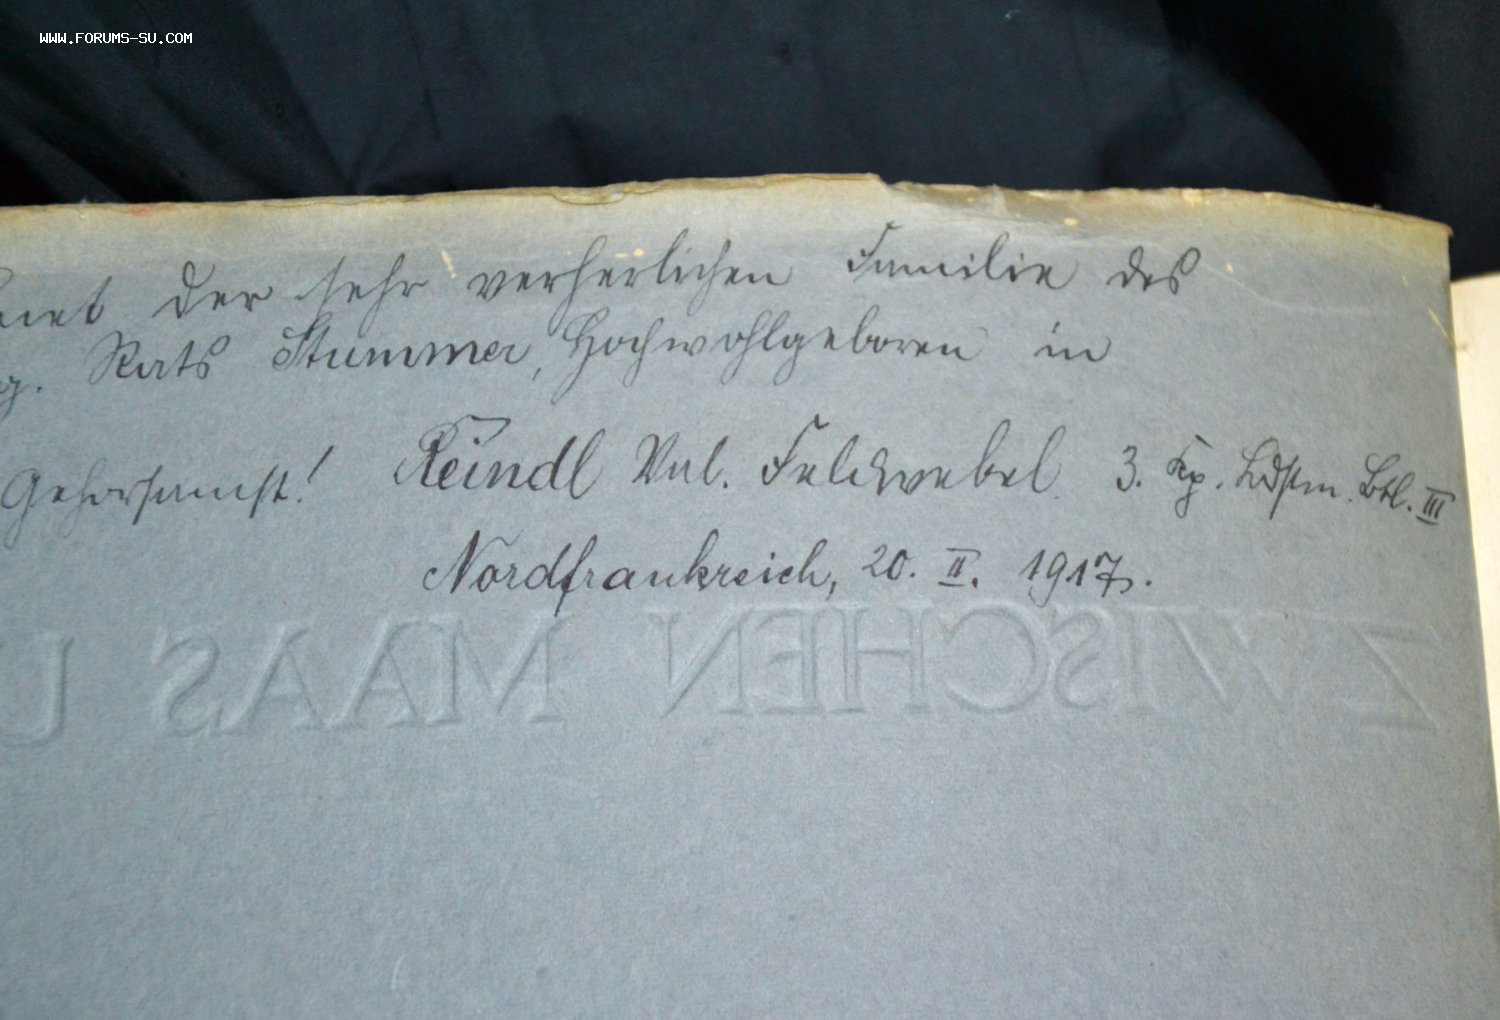 WWW.FORUMS-SU.COM
der sehr verherlichen Familie des
Rats Stummer, Hochwohlgeboren in
Gehorsamst! Reindl Val. Feldwebel 3. Kp. Ldstm. Btl. III
Nordfrankreich, 20. II. 1917.
ZWISCHEN MAAS U